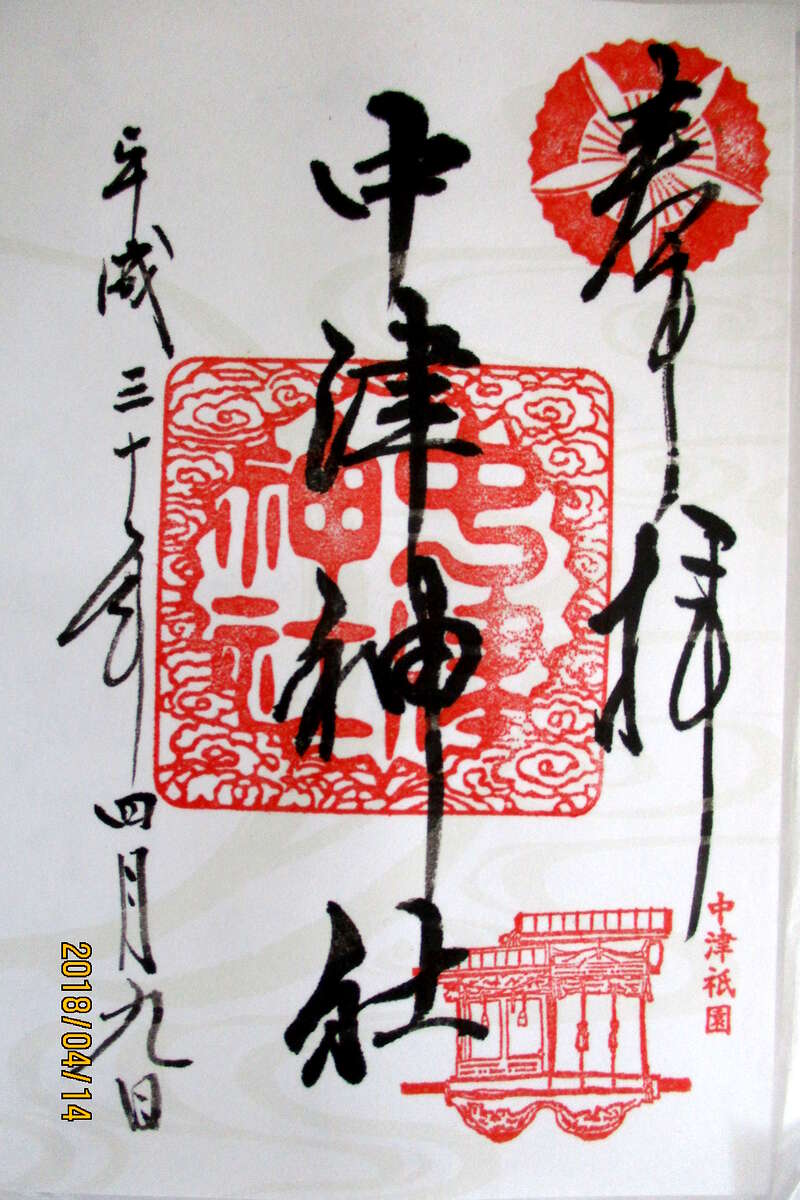 奉拝
中津祇園
中津神社
中津神社
平成三十年四月九日
2018/04/14